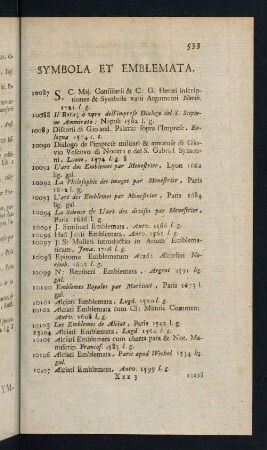 533
SYMBOLA ET EMBLEMATA.
10087 S. C. Maj. Consiliarii & C. G. Heræi inscrip-
tiones & Symbola varii Argumenti Norib.
1721 l. g.
10088 Il Rota; ò vero dell'imprese Dialogo del S. Scipio-
ne Ammirato: Napoli 1562 l. g.
10089 Discorsi di Gioand. Palazzi sopra l'Imprese: Bo-
logna 1575 l. c.
10090 Dialogo de l'imprese militari & amorose di Giovio
Vescovo di Nocera e del S. Gabriel Symeo-
ni. Lione, 1574 l. g. 8
10091 L'art des Emblemes par Menestrier, Lyon 1662
lig. gal.
10092 La Philosophie des images par Menestrier, Paris
1682 l. g.
10093 L'art des Emblemes par Menestrier, Paris 1684
lig. gal.
10094 La Science & L'art des devises par Menestrier,
Paris 1686 l. g.
10095 J. Sambuci Emblemata, Antv. 1566 l.
10096 Had Junii Emblemata, Antv. 1565 l. g.
10097 J. St Mülleri introductio in Artem Emblema-
ticam, Jenæ. 1706 l. g.
10098 Epitome Emblematum Acad: Altorfini No-
rimb. 1602 l. g.
10099 N: Reusneri Emblemata, Argent 1591 lig.
gal.
10100 Emblemes Royales par Martinet, Paris 1673 l.
gal.
10101 Alciati Emblemata, Lugd. 1550 l.
10102 Alciati Emblemata cum Cl: Minois Comment
Antv. 1608 l. g.
10103 Les Emblemes de Alciat, Paris 1542 l. g.
10104 Alciati Emblemata, Lugd 1564 l. c.
10105 Alciati Emblemata cum charta pura & Not. Ma-
nuscrip. Francof. 1583 l. g.
10106 Alciati Emblemata, Paris apud Wechel 1534 lig.
gal.
10107 Alciati Emblemata, Antv. 1599 l. g.
Xxx 3